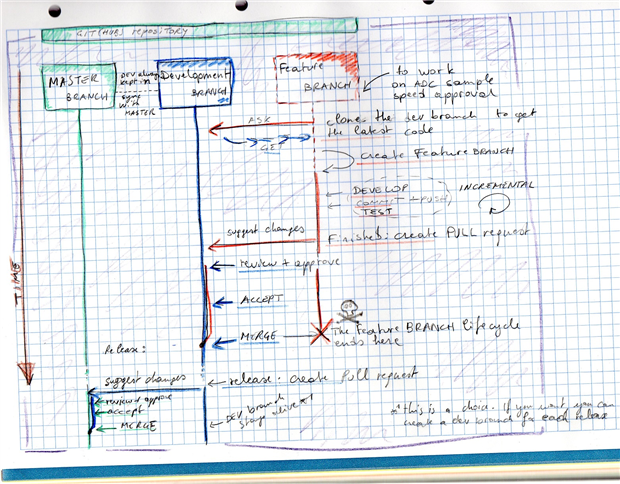 GIT(HUB) repository
MASTER
BRANCH
DEV always
kept in
sync
with
MASTER
Development
BRANCH
Feature
BRANCH
to work
on ADC sample
speed approval
ASK
clone the dev branch to get
the latest code
GET
create Feature BRANCH
DEVELOP
COMMIT + PUSH
TEST
INCREMENTAL
suggest changes
Finished: create PULL request
review + approve
ACCEPT
MERGE
The Feature BRANCH lifecycle
ends here
TIME
Release:
suggest changes
release: create Pull request
review + approve
accept
MERGE
DEV branch
stays alive *1
*1 this is a choice. If you want you can
create a dev branch for each release